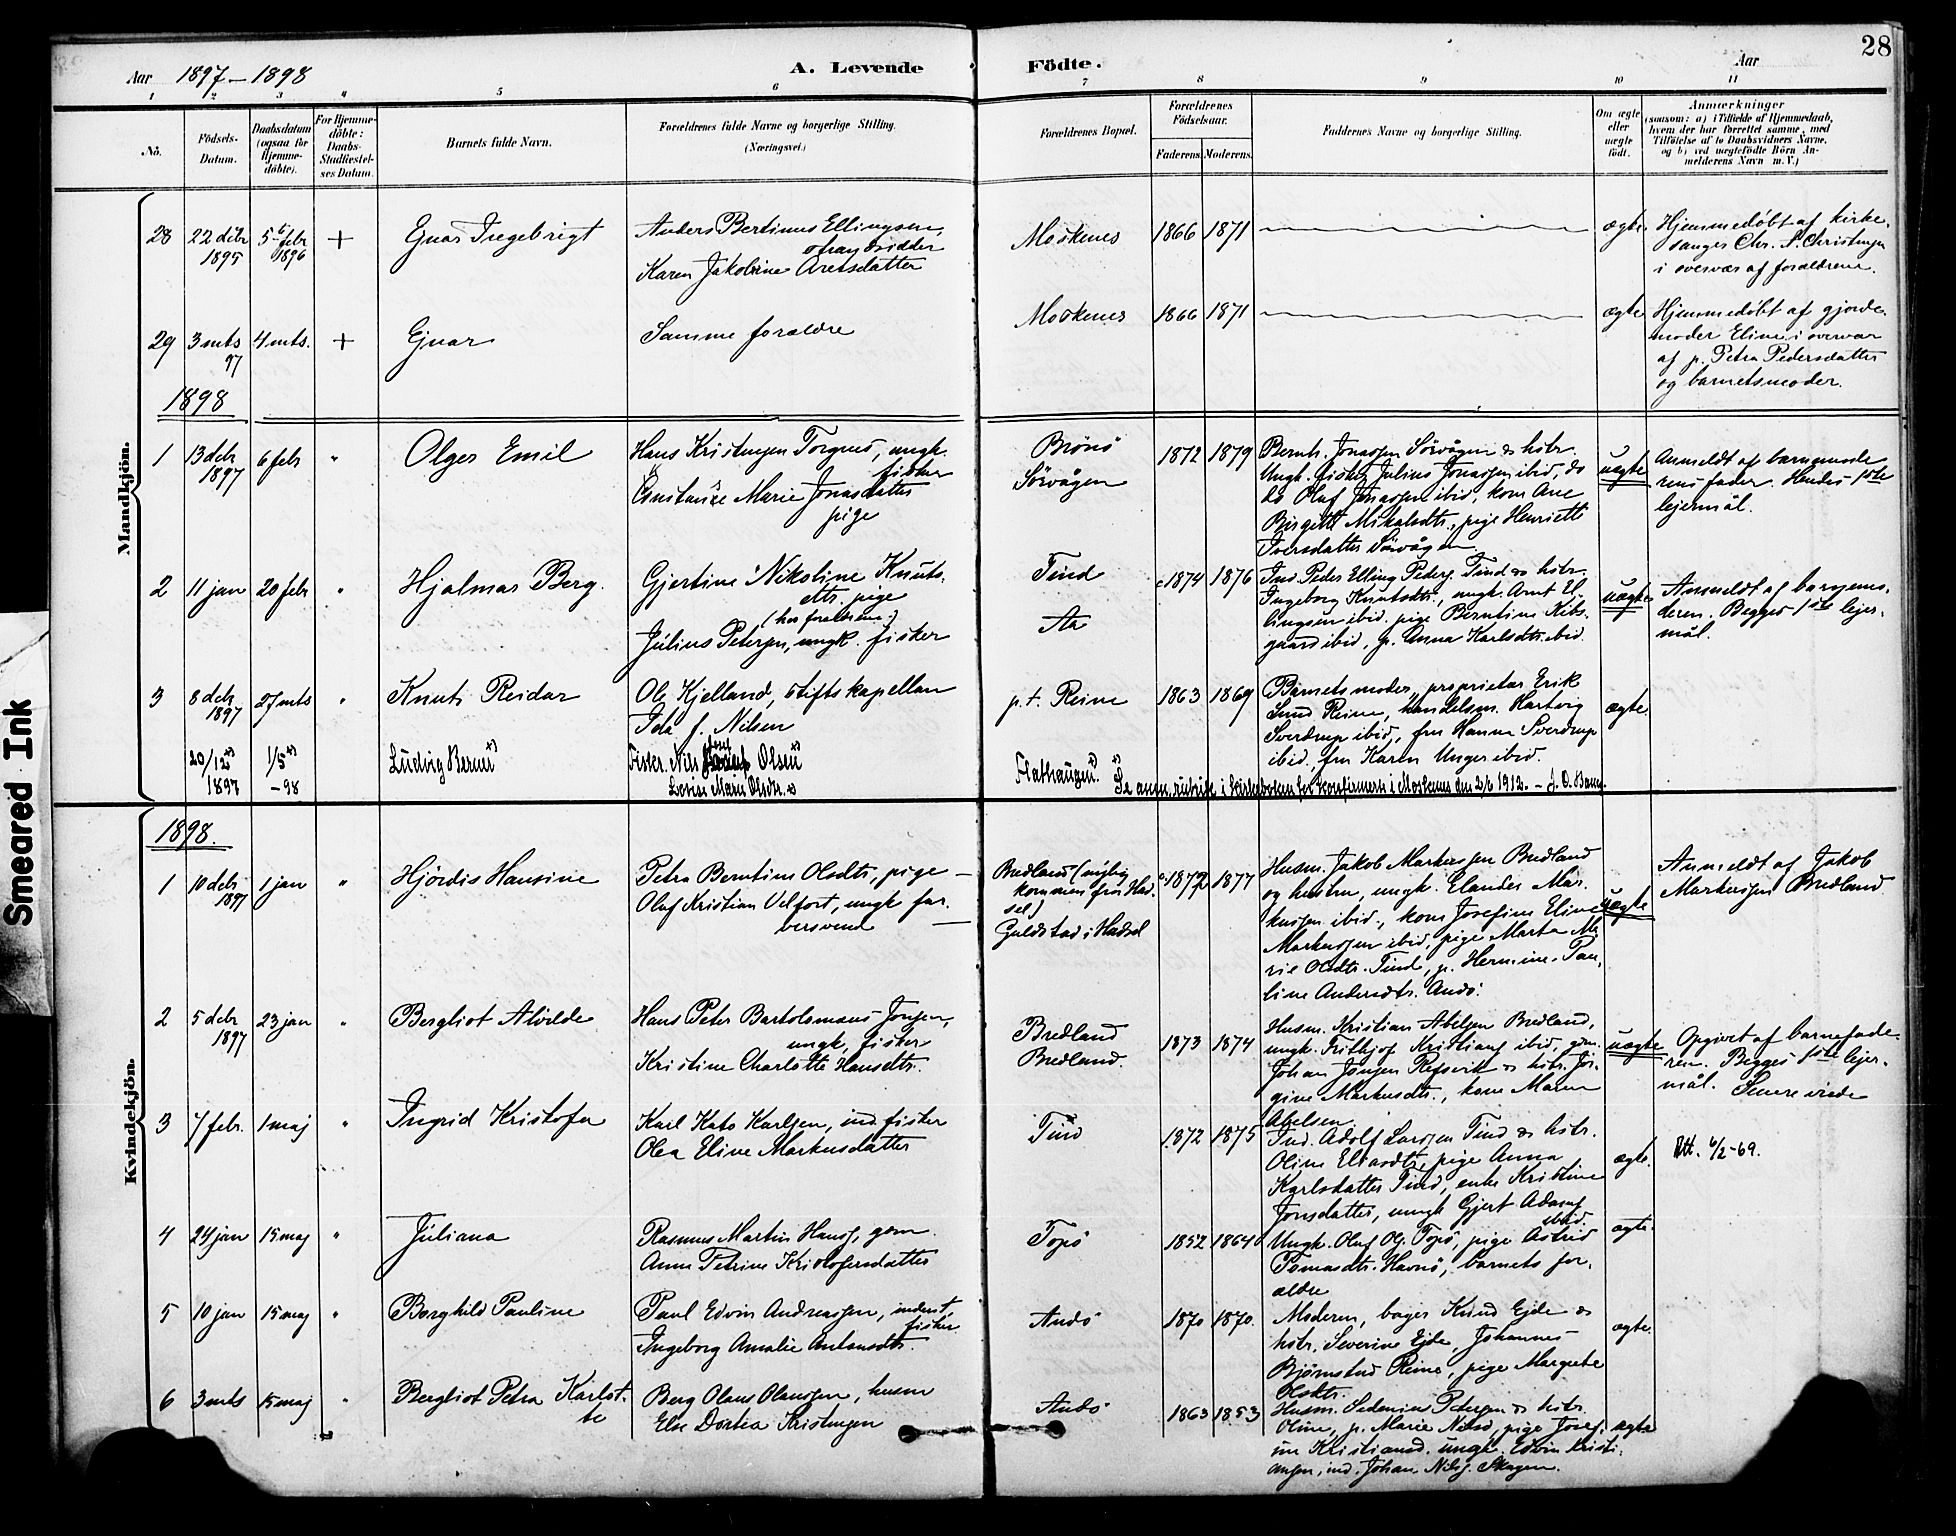 28
Aar 1897-1898
A. Levende Födte.
Aar
1 2 3 4 5 6 7 8 9 10 11
No.
Födsels-
Datum.
Daabsdatum
(ogsaa for
Hjemme-
döbte).
For Hjemme-
döbte:
Daabs-
Stadfæstel-
ses Datum.
Barnets fulde Navn.
Forældrenes fulde Navne og borgerlige Stilling.
(Næringsvei.)
Forældrenes Bopæl.
Forældrenes
Födselsaar.
Faderens. Moderens.
Faddernes Navne og borgerlige Stilling.
Om ægte
eller
uægte
födt.
Anmærkninger
(saasom: a) i Tilfælde af Hjemmedaab,
hvem der har forrettet samme, med
Tilföielse af to Daabsvidners Navne,
og b) ved uægtefödte Börn An-
melderens Navn m. V.)
Mandkjön.
28
22 decbr
1895
5 febr
1896
+
Ejnar Ingebrigt
Anders Bertinus Ellingsen,
strandsidder
Karen Jakobine Arentsdatter
Moskenes
1866 1871
ægte
Hjemmedøbt af kirke-
sanger Chr. S. Christensen
i overvær af forældrene.
29
3 mts
97
4 mts.
+
Ejnar
Samme forældre
Moskenes
1866 1871
ægte
Hjemmedøbt af gjorde-
moder Eline i overvær
af p. Petra Pedersdatter
og barnets moder.
1898
1
13 dcb
1897
6 febr
"
Olger Emil
Hans Kristensen Torgnes, ungk.
fisker
Constance Marie Jonasdatter
pige
Brønø
Sörvågen
1872 1879
Bernh. Jonassen Sörvågen & hstr.
Ungk. fisker Julius Jonassen ibid, do
do Oluf Jonassen ibid, kone Ane
Birgitte Mikalsdtr., pige Henriette
Iversdatter Sörvågen
uægte
Anmeldt af barnemode
rens fader. Hendes 1ste
lejermål.
2
11 jan
20 febr
"
Hjalmar Berg.
Gjertine Nikoline Knuts-
dtr. pige
(hos forældrene)
Julius Petersen, ungk. fisker
Tind
Aa
1874 1876
Ind. Peder Elling Peders. Tind & hstr.
Ingeborg Knutsdtr., ungk. Arnt El-
lingsen ibid. pige Berntine Kibs-
gaard ibid, p. Anna Karlsdtr. ibid.
uægte
Anmeldt af barnemo-
deren. Begges 1ste lejer-
mål.
3
8 dcb
1897
27 mts
"
Knut Reidar
Ole Kjelland, stiftskapellan
Ida f. Nilsen
p.t. Reine
1863 1869
Barnets moder, proprietær Erik
Lund Reine, handelsm. Hartvig
Sverdrup ibid, fru Hanna Sverdrup
ibid, fru Karen Unger ibid.
ægte.
20/12
1897
1/5
-98
Ludvig Berner
Fisker Nils Olsen
Lovise Marie Olsdtr.
Flathaugen.
Se anm. rubrik i kirkeboken for konfirmerte i Moskenes den 2/6 1912. -
Kvindekjön.
1898.
1
10 decbr
1897
1 jan
"
Hjördis Hansine
Petra Berntine Olsdtr, pige -
Oluf Kristian Velfort, ungk far-
versvend -
Bredland (nylig
kommen fra Had-
sel)
Guldstad i Hadsel
1872 1877
Husm. Jakob Markussen Bredland
og hustru, ungk. Elander Mar-
kussen ibid., kone Josefine Eline
Markussen ibid, pige Marta Ma-
rie Olsdtr. Tind, p. Hermine Pau-
line Andersdtr. Andö.
uægte
Anmeldt af Jakob
Markussen Bredland
2
5 decbr
1897
23 jan
"
Bergliot Alvilde
Hans Peter Bartolomæus Jensen,
ungk, fisker
Kristine Charlotte Hansdtr.
Bredland
Bredland.
1873 1874
Husm. Kristian Abelsen Bredland,
ungk. Frithjof Kristians. ibid, gdm.
Johan Jörgen Refsvik & hstr. Jör-
gine Markusdtr., kone Maren
Abelsen.
uægte
Opgivet af barnefade-
ren. Begges 1ste lejer-
mål. Senere viede
3
7 febr.
1 maj
"
Ingrid Kristofa
Karl Kato Karlsen, ind. fisker
Olea Eline Markusdatter
Tind
1872 1875
Ind. Adolf Larsen Tind & hstr.
Oline Eliasdtr, pige Anna
Karlsdatter Tind, enke Kristine
Jonsdatter, ungk Gjert Adams.
ibid.
ægte.
Att. 6/2-69.
4
24 jan
15 maj
"
Juliana
Rasmus Martin Hans., gdm.
Anne Petrine Kristofersdatter
Topö
1852 1864
Ungk. Oluf Ols. Topö, pige Astrid
Tomasdtr. Havnö, barnets for-
ældre
ægte.
5
10 jan
15 maj
"
Borghild Pauline
Paul Edvin Andreassen, inderst,
fisker
Ingeborg Amalie Antonsdtr.
Andö
1870 1870.
Moderen, bager Knud Ejde &
hstr. Severine Ejde, Johannes
Björnstad Reine, pige Margrete
Olsdtr.
ægte.
6
3 mts
15 maj
"
Bergliot Petra Karlot-
te
Berg Olaus Olaussen, husm
Else Dortea Kristensen
Andö
1863 1853
Husm. Sedenius Petersen & hstr.
Oline, p. Marie Nilsd, pige Josef-
ine Kristiansd. ungk. Edvin Kristi-
ansen, ind. Johan Nils. Skagen.
ægte
Smeared Ink